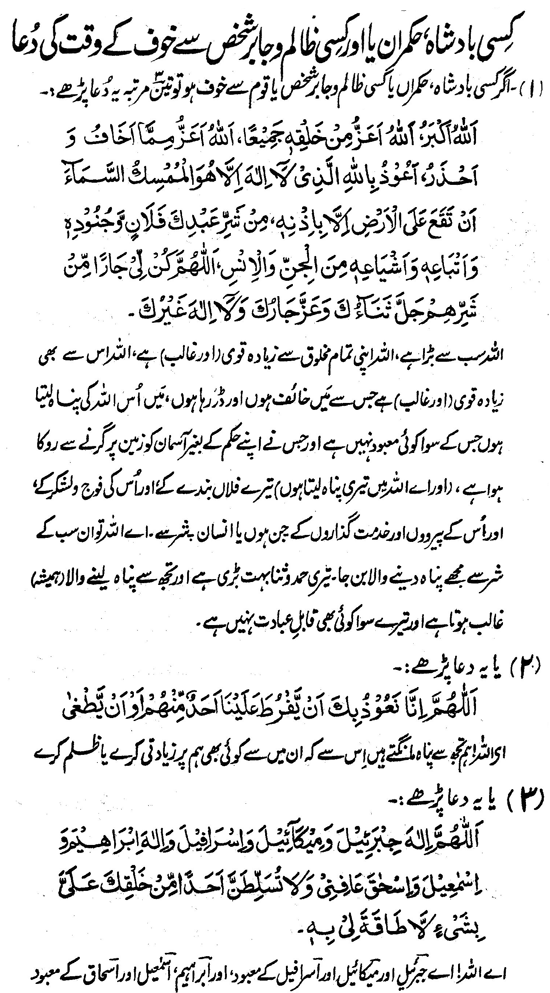 کسی بادشاہ، حکمران یا اور کسی ظالم و جابر شخص سے خوف کے وقت کی دُعا
(۱)۔ اگر کسی بادشاہ، حکمراں یا کسی ظالم و جابر شخص یا قوم سے خوف ہو تو تین مرتبہ یہ دُعا پڑھے:۔
اَللّٰهُ اَكْبَرُ، اَللّٰهُ اَعَزُّ مِنْ خَلْقِهٖ جَمِيْعًا، اَللّٰهُ اَعَزُّ مِمَّا اَخَافُ وَ
اَحْذَرُ، اَعُوْذُ بِاللّٰهِ الَّذِىْ لَآ اِلٰهَ اِلَّا هُوَ الْمُمْسِكُ السَّمَآءَ
اَنْ تَقَعَ عَلَى الْاَرْضِ اِلَّا بِاِذْنِهٖ، مِنْ شَرِّ عَبْدِكَ فُلَانٍ وَّجُنُوْدِهٖ
وَاَتْبَاعِهٖ وَاَشْيَاعِهٖ مِنَ الْجِنِّ وَالْاِنْسِ، اَللّٰهُمَّ كُنْ لِّىْ جَارًا مِّنْ
شَرِّهِمْ جَلَّ ثَنَآءُكَ وَعَزَّ جَارُكَ وَلَآ اِلٰهَ غَيْرُكَ۔
اللہ سب سے بڑا ہے، اللہ اپنی تمام مخلوق سے زیادہ قوی (اور غالب) ہے، اللہ اس سے بھی
زیادہ قوی (اور غالب) ہے جس سے میں خائف ہوں اور ڈر رہا ہوں، میں اُس اللہ کی پناہ لیتا
ہوں جس کے سوا کوئی معبود نہیں ہے اور جس نے اپنے حکم کے بغیر آسمان کو زمین پر گرنے سے روکا
ہوا ہے، (اور اے اللہ میں تیری پناہ لیتا ہوں) تیرے فلاں بندے کے، اور اُس کی فوج ولشکر کے،
اور اُس کے پیرووں اور خدمت گذاروں کے جن ہوں یا انسان شر سے۔ اے اللہ تو ان سب کے
شر سے مجھے پناہ دینے والا بن جا۔ تیری حمد و ثنا بہت بڑی ہے اور تجھ سے پناہ لینے والا (ہمیشہ)
غالب ہوتا ہے اور تیرے سوا کوئی بھی قابلِ عبادت نہیں ہے۔
(۲) یا یہ دعا پڑھے:۔
اَللّٰهُمَّ اِنَّا نَعُوْذُ بِكَ اَنْ يَّفْرُطَ عَلَيْنَا اَحَدٌ مِّنْهُمْ اَوْ اَنْ يَّطْغٰى
ای اللہ! ہم تجھ سے پناہ مانگتے ہیں اِس سے کہ ان میں سے کوئی بھی ہم پر زیادتی کرے یا ظلم کرے
(۳) یا یہ دعا پڑھے:۔
اَللّٰهُمَّ اِلٰهَ جِبْرَئِيْلَ وَمِيْكَآئِيْلَ وَاِسْرَافِيْلَ وَاِلٰهَ اِبْرَاهِيْمَ وَ
اِسْمٰعِيْلَ وَاِسْحٰقَ عَافِنِىْ وَلَا تُسَلِّطَنَّ اَحَدًا مِّنْ خَلْقِكَ عَلَىَّ
بِشَىْءٍ لَّا طَاقَةَ لِىْ بِهٖ۔
اے اللہ! اے جبرئیل اور میکائیل اور اسرافیل کے معبود، اور ابراہیم، اسمٰعیل اور اسحاق کے معبود